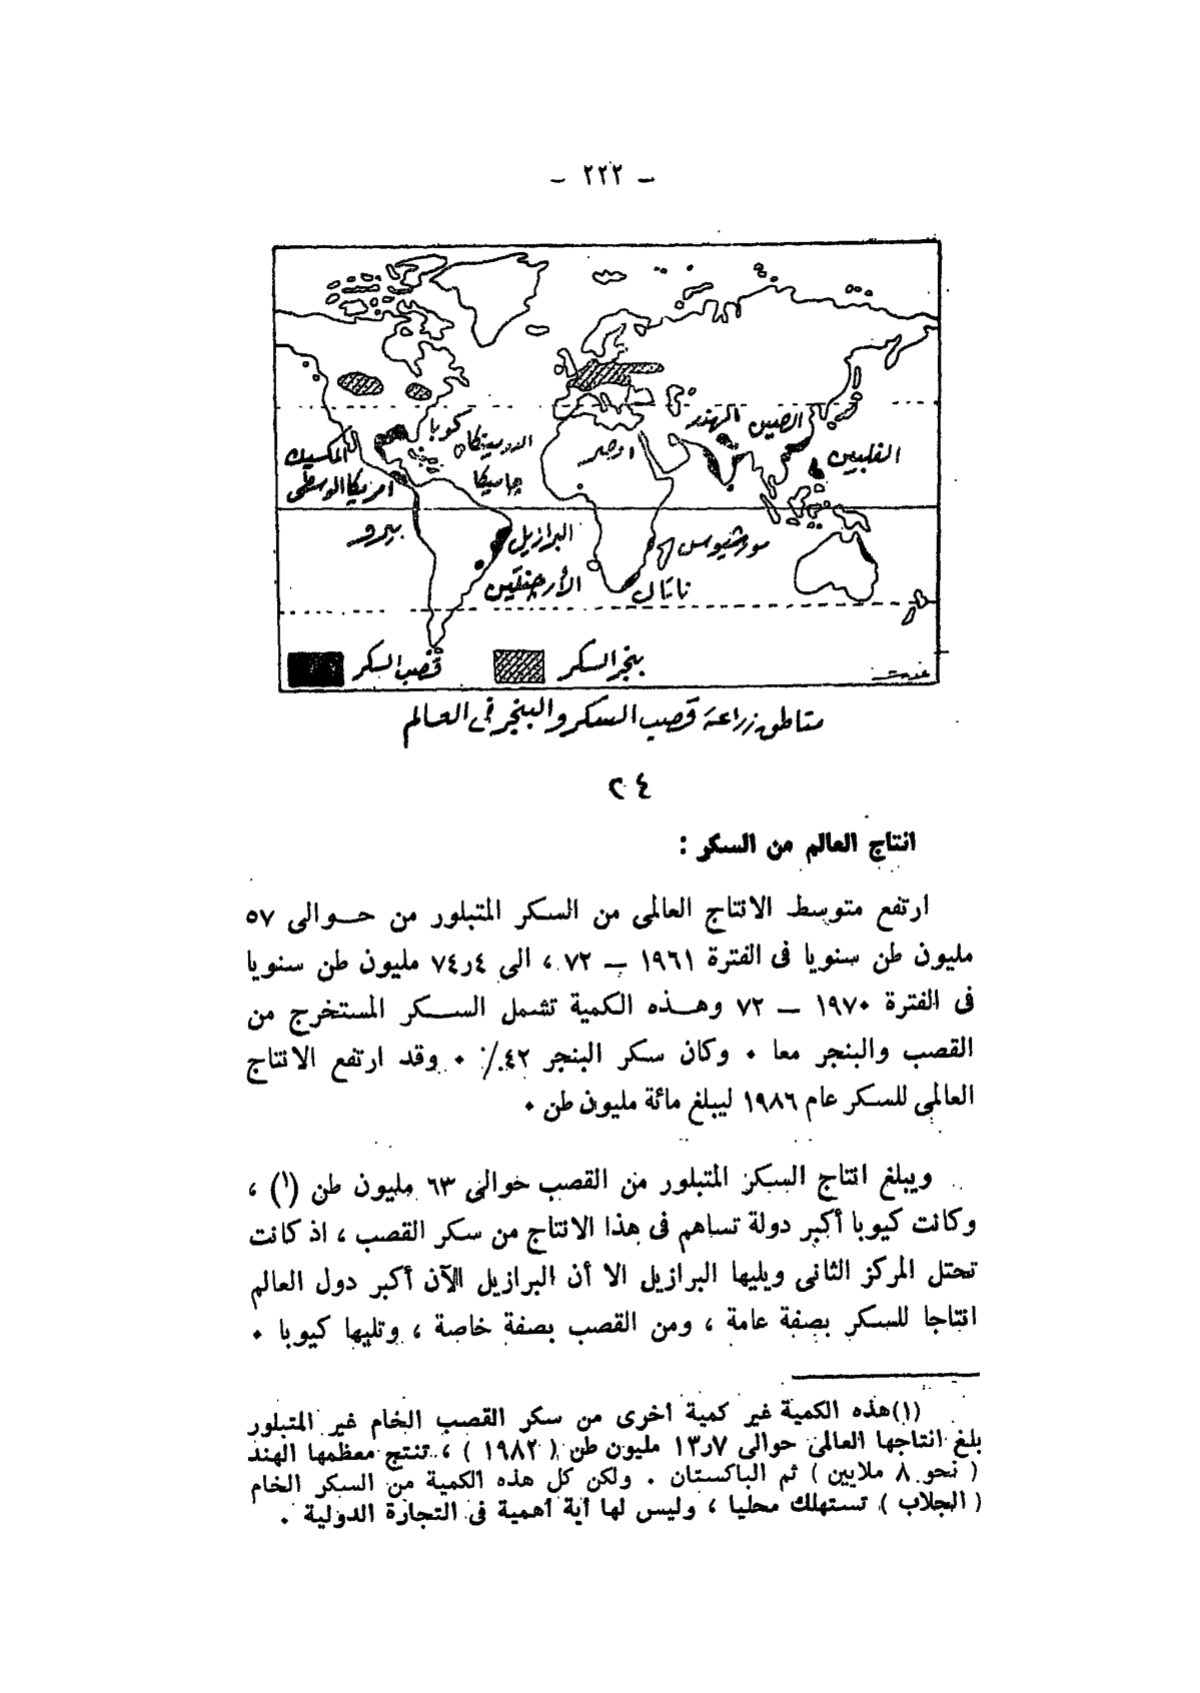 ـ ٢٢٢ ـ
الصين
الهند
كوبا
الدومينيكا
الفلبين
المكسيك
جاميكا
امريكا الوسطى
بيرو
البرازيل
موشيوس
الأرجنتين
ناتال
قصب السكر
بنجر السكر
مناطق زراعة قصب السكر والبنجر في العالم
٢٤
انتاج العالم من السكر :
ارتفع متوسط الانتاج العالمى من السكر المتبلور من حـوالى ٥٧
مليون طن سنويا فى الفترة ١٩٦١ ــ ٧٢ ، الى ٤ر٧٤ مليون طن سنويا
فى الفترة ١٩٧٠ ــ ٧٢ وهـذه الكمية تشمل السـكر المستخرج من
القصب والبنجر معا ٠ وكان سكر البنجر ٤٢٪ ٠ وقد ارتفع الانتاج
العالمى للسكر عام ١٩٨٦ ليبلغ مائة مليون طن ٠
ويبلغ انتاج السكر المتبلور من القصب حوالى ٦٣ مليون طن (١) ،
وكانت كيوبا أكبر دولة تساهم فى هذا الانتاج من سكر القصب ، اذ كانت
تحتل المركز الثانى ويليها البرازيل الا أن البرازيل الآن أكبر دول العالم
انتاجا للسكر بصفة عامة ، ومن القصب بصفة خاصة ، وتليها كيوبا ٠
(١)هذه الكمية غير كمية أخرى من سكر القصب الخام غير المتبلور
بلغ انتاجها العالمى حوالى ٧ر١٣ مليون طن ( ١٩٨٢ ) ، تنتج معظمها الهند
( نحو ٨ ملايين ) ثم الباكستان . ولكن كل هذه الكمية من السكر الخام
( الجلاب ) تستهلك محليا ، وليس لها أية أهمية فى التجارة الدولية .